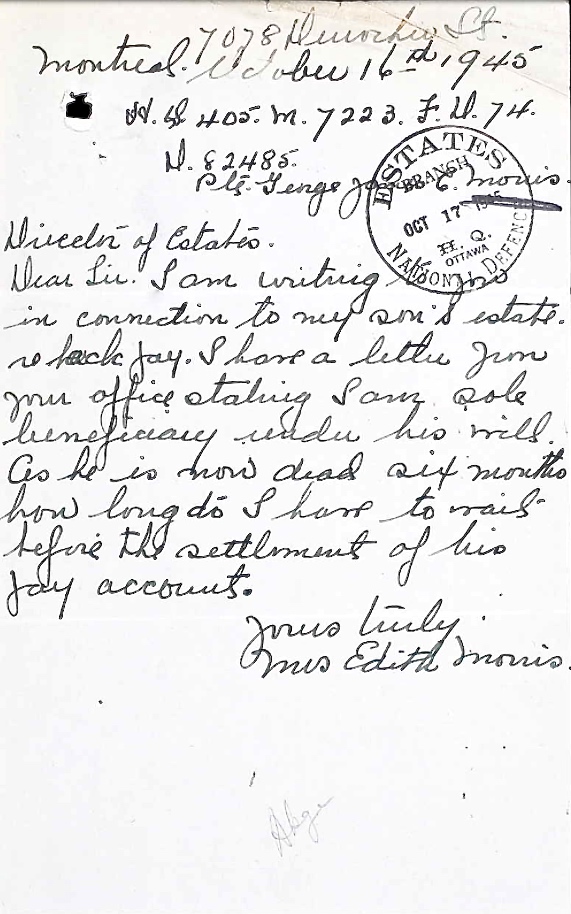 7078 Durocher St.
Montreal. October 16th 1945
H.Q 405. M. 7223. F. D. 74.
D. 82485.
Pte. George James C. Morris.
ESTATES
BRANCH
OCT 17 1945
H. Q.
OTTAWA
NATIONAL DEFENCE
Director of Estates.
Dear Sir. I am writing to you
in connection to my son's estate.
re back pay. I have a letter from
your office stating I am sole
beneficiary under his will.
As he is now dead six months
how long do I have to wait
before the settlment of his
pay account.
Yours truly.
Mrs Edith Morris.